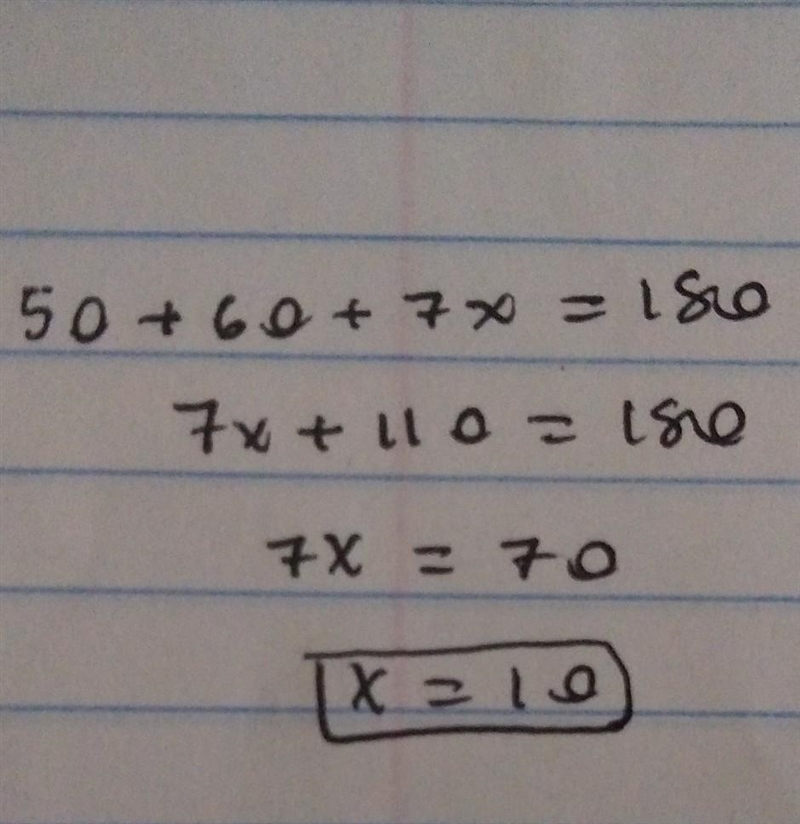 50 + 60 + 7x = 180
7x + 110 = 180
7x = 70
x = 10